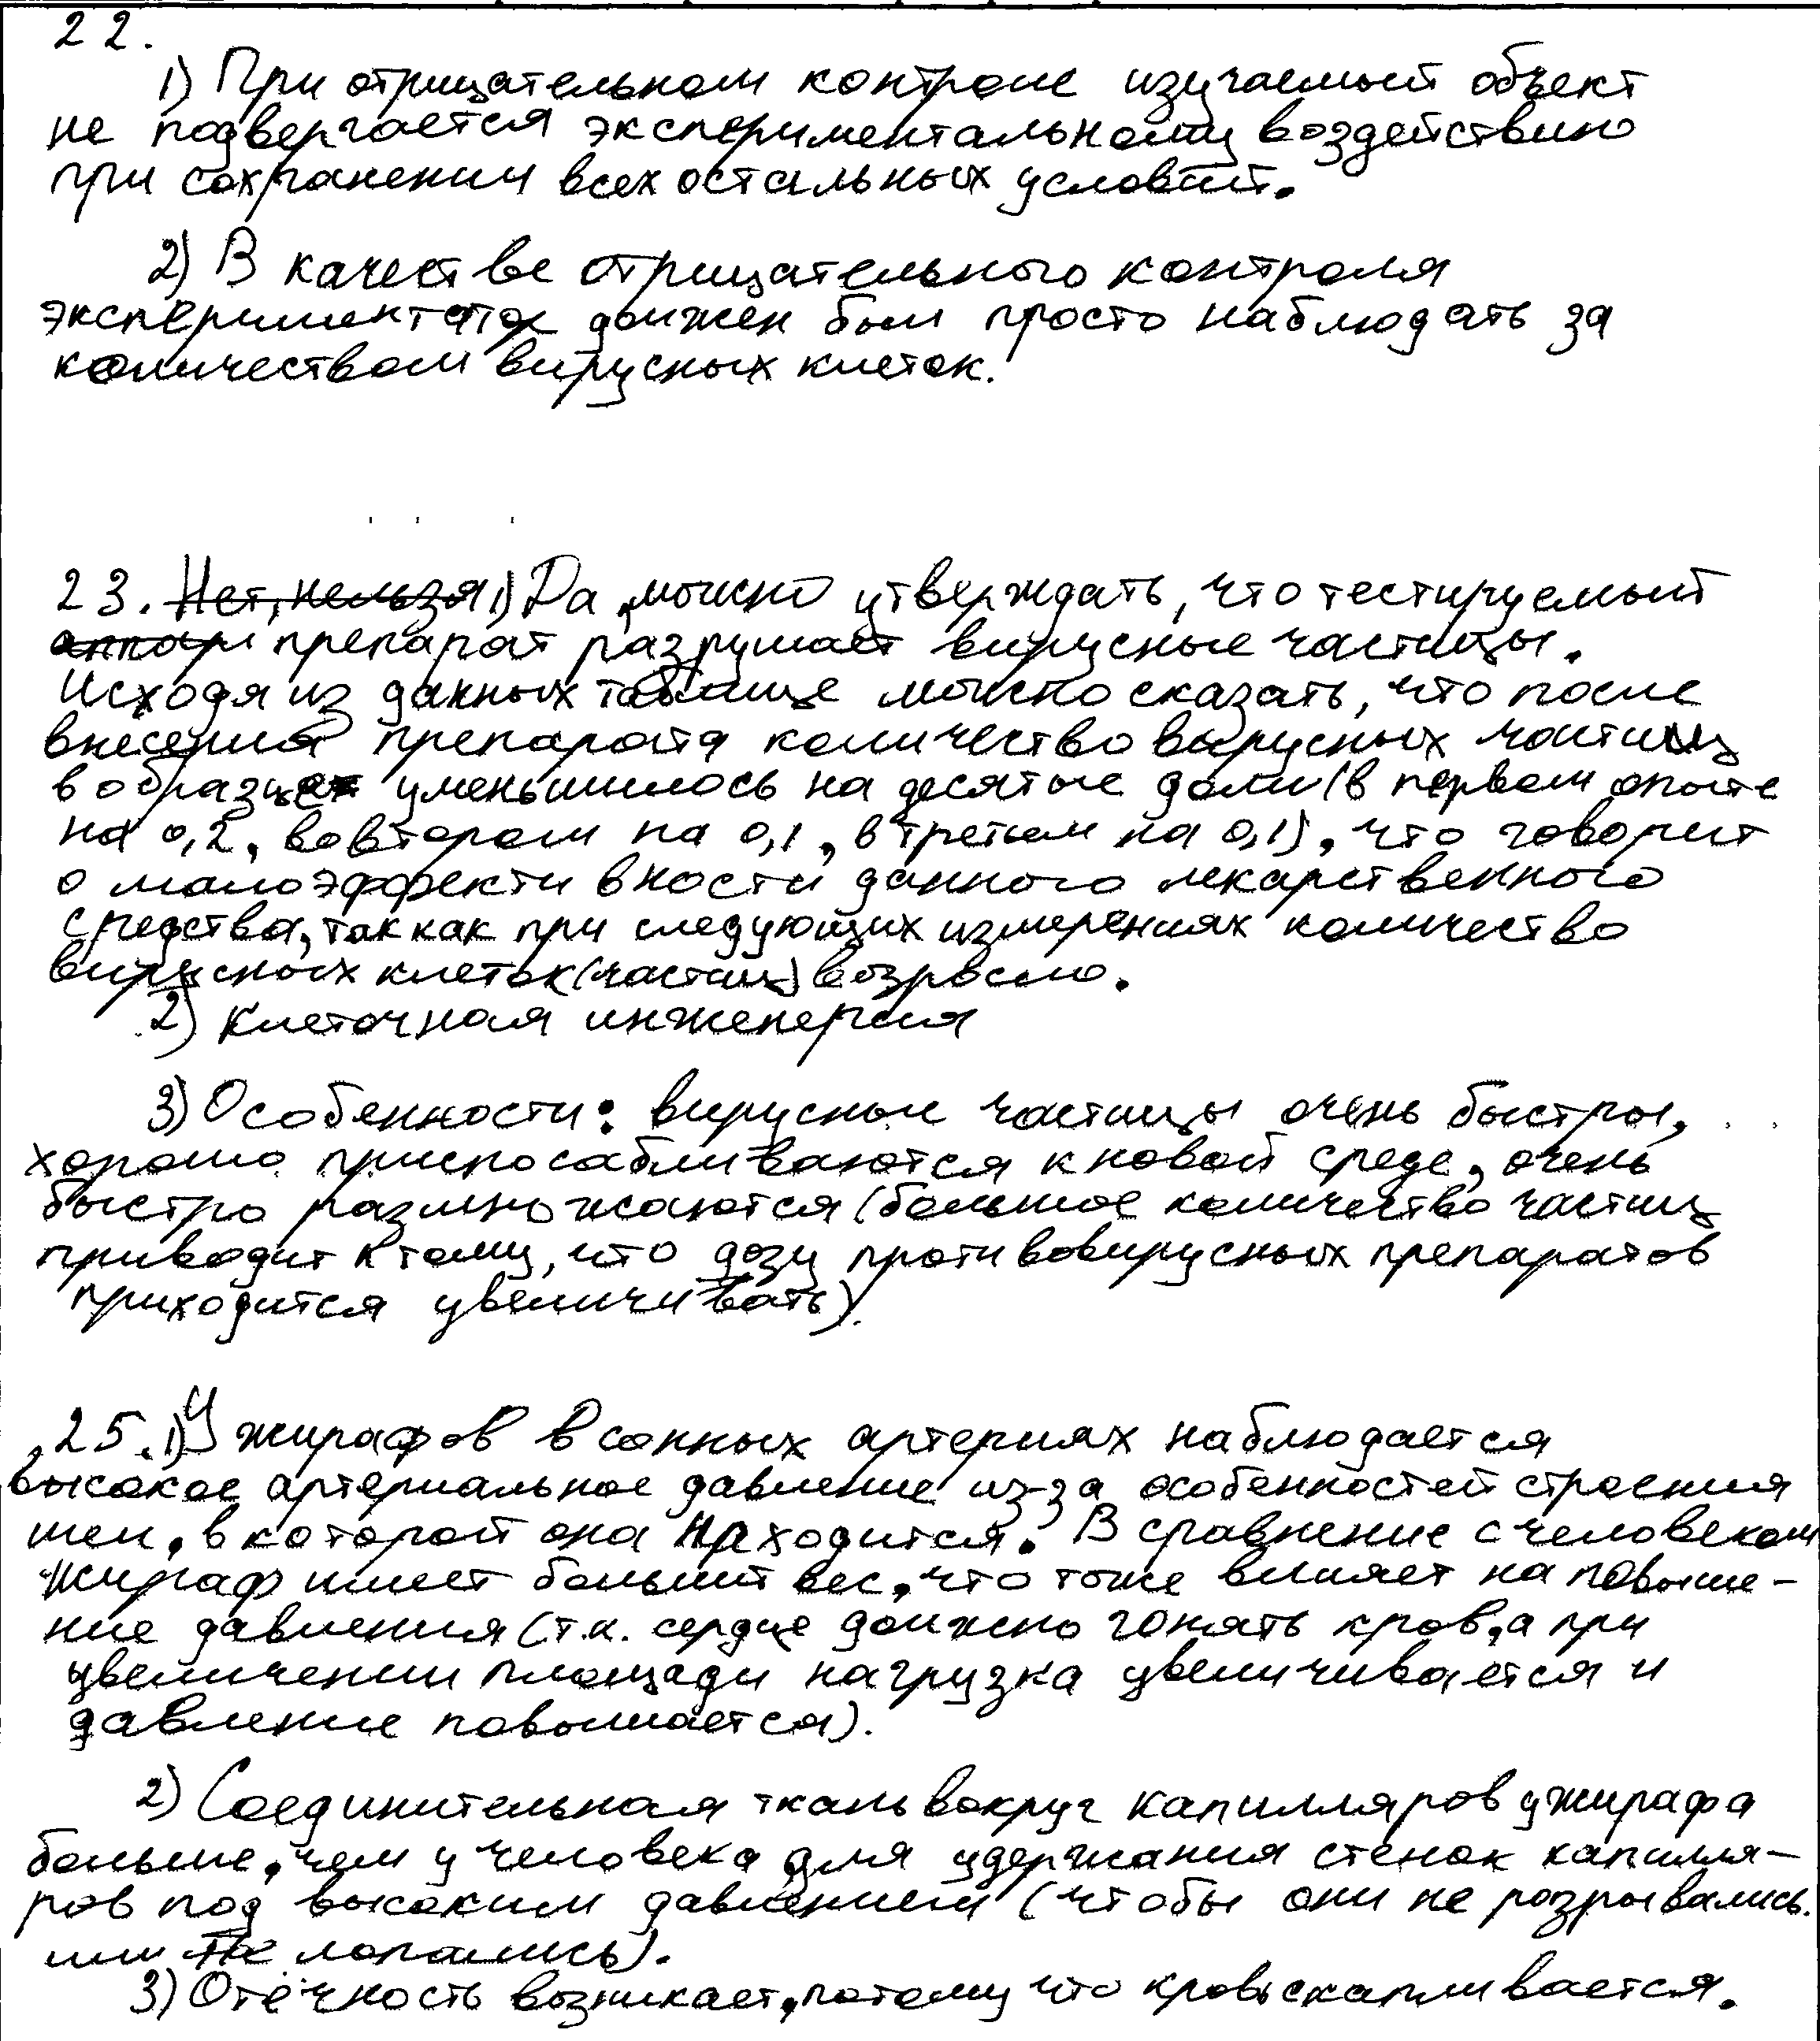 22.
1) При отрицательном контроле изучаемый объект
не подвергается экспериментальному воздействию
при сохранении всех остальных условий.
2) В качестве отрицательного контроля
экспериментатор должен был просто наблюдать за
количеством вирусных клеток.
23. Нет, нельзя 1) Да, можно утверждать, что тестируемый
препарат разрушает вирусные частицы.
Исходя из данных таблице можно сказать, что после
внесения препарата количество вирусных частиц
в образце уменьшилось на десятые доли (в первом опыте
на 0,2, во втором на 0,1, в третьем на 0,1), что говорит
о малоэффективности данного лекарственного
средства, так как при следующих измерениях количество
вирусных клеток (частиц) возросло.
2) Клеточная инженерия
3) Особенности: вирусные частицы очень быстры,
хорошо приспосабливаются к новой среде, очень
быстро размножаются (большое количество частиц
приводит к тому, что дозу противовирусных препаратов
приходится увеличивать).
25. 1) У жирафов в сонных артериях наблюдается
высокое артериальное давление из-за особенностей строения
шеи, в которой она находится. В сравнение с человеком
жираф имеет больший вес, что тоже влияет на повыше-
ние давления (т.к. сердце должно гонять кров, а при
увеличении площади нагрузка увеличивается и
давление повышается).
2) Соединительная ткань вокруг капилляров у жирафа
больше, чем у человека для удержания стенок капилля-
ров под высоким давлением (чтобы они не розрывались
или не лопались).
3) Отёчность возникает, потому что кровь скапливается.